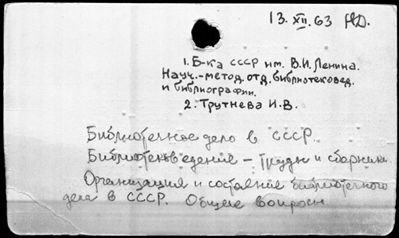 13.XII.63
1. Б-ка СССР им. В.И. Ленина.
Науч.-метод. отд. библиотековед.
и библиографии.
2. Трутнева И.В.
Библиотечное дело в СССР.
Библиотековедение – Труды и сборники
Организация и состояние библиотечного
дела в СССР. Общие вопросы